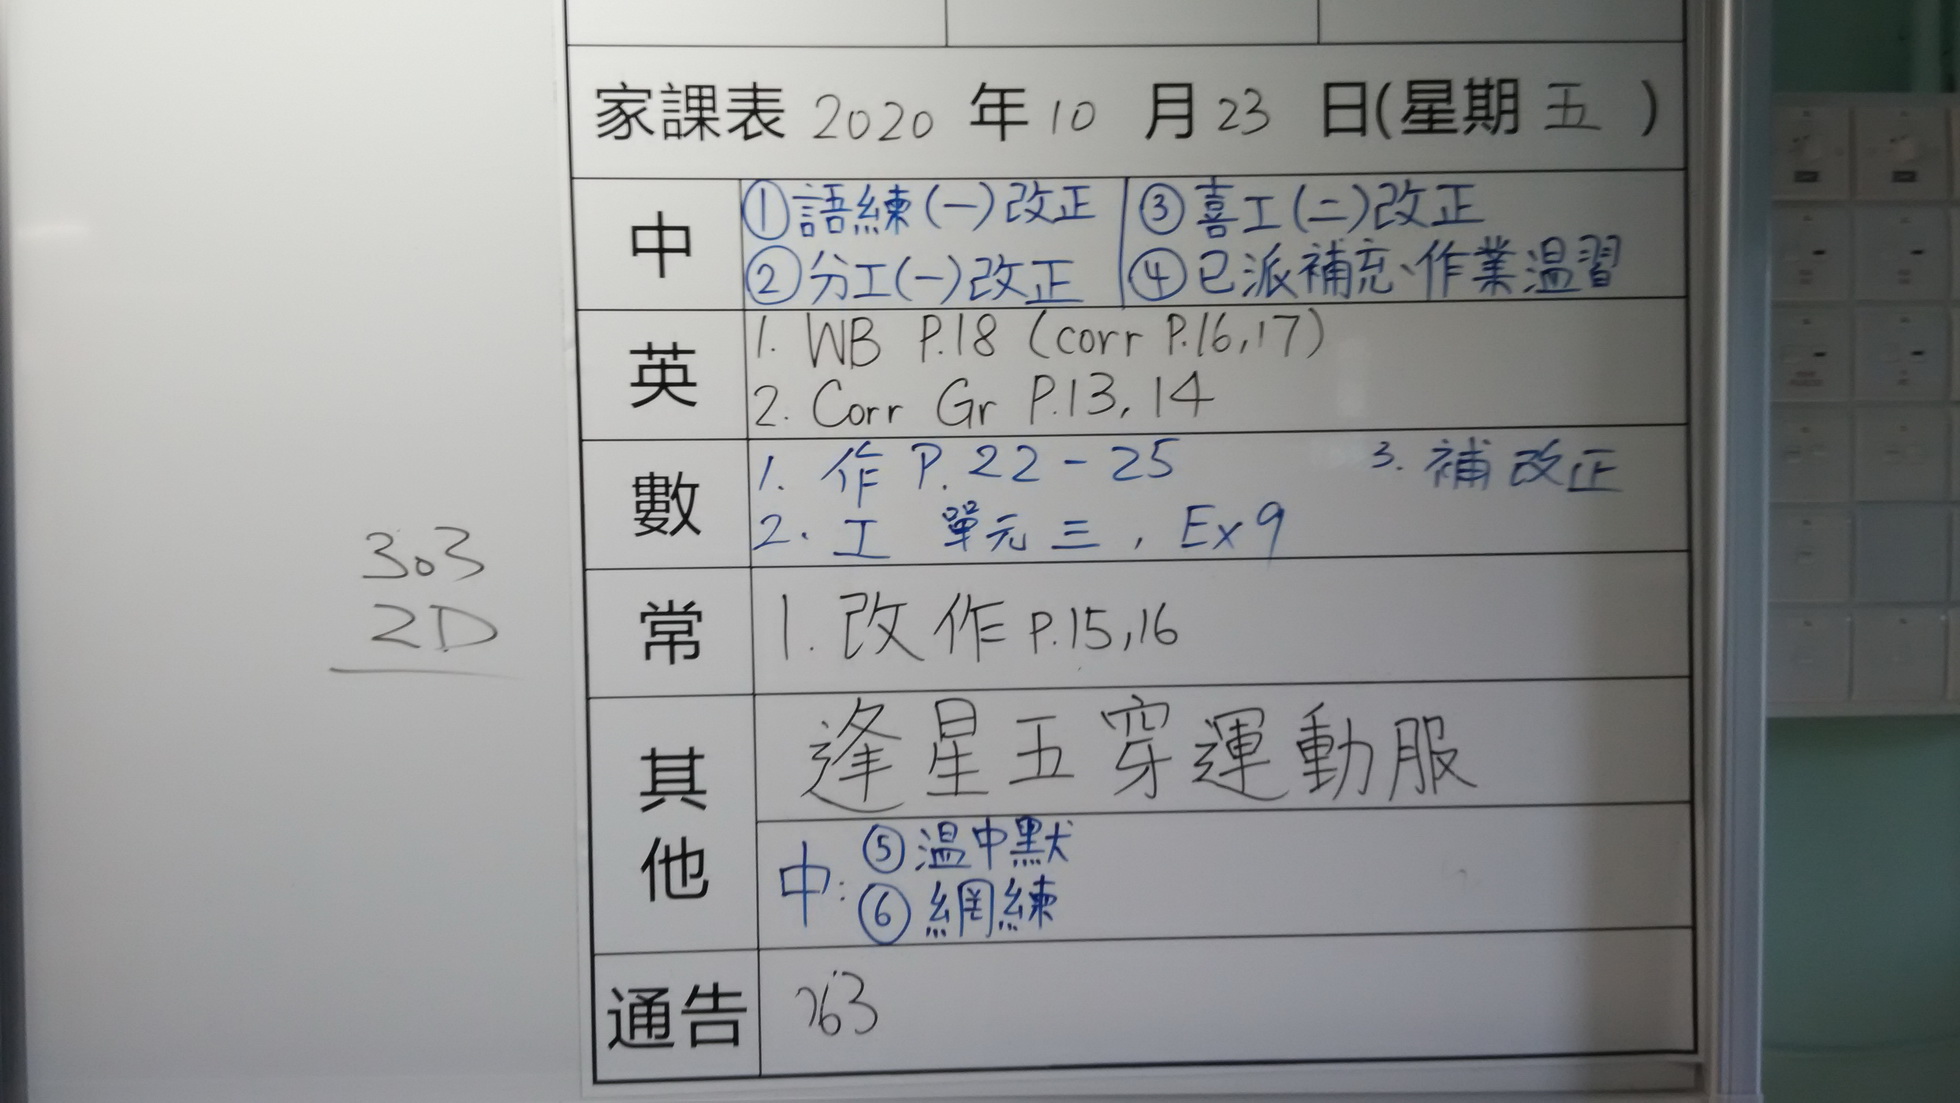 家課表 2020 年 10 月 23 日(星期 五 )
中
①語練(一)改正
②分工(一)改正
③喜工(二)改正
④已派補充、作業温習
英
1. WB P.18 (corr P.16,17)
2. Corr Gr P.13, 14
數
1. 作 P. 22 - 25
2. 工 單元三, Ex 9
3. 補改正
303
2D
常
1. 改作 P.15,16
其他
逢星五穿運動服
中: ⑤温中默
⑥網練
通告